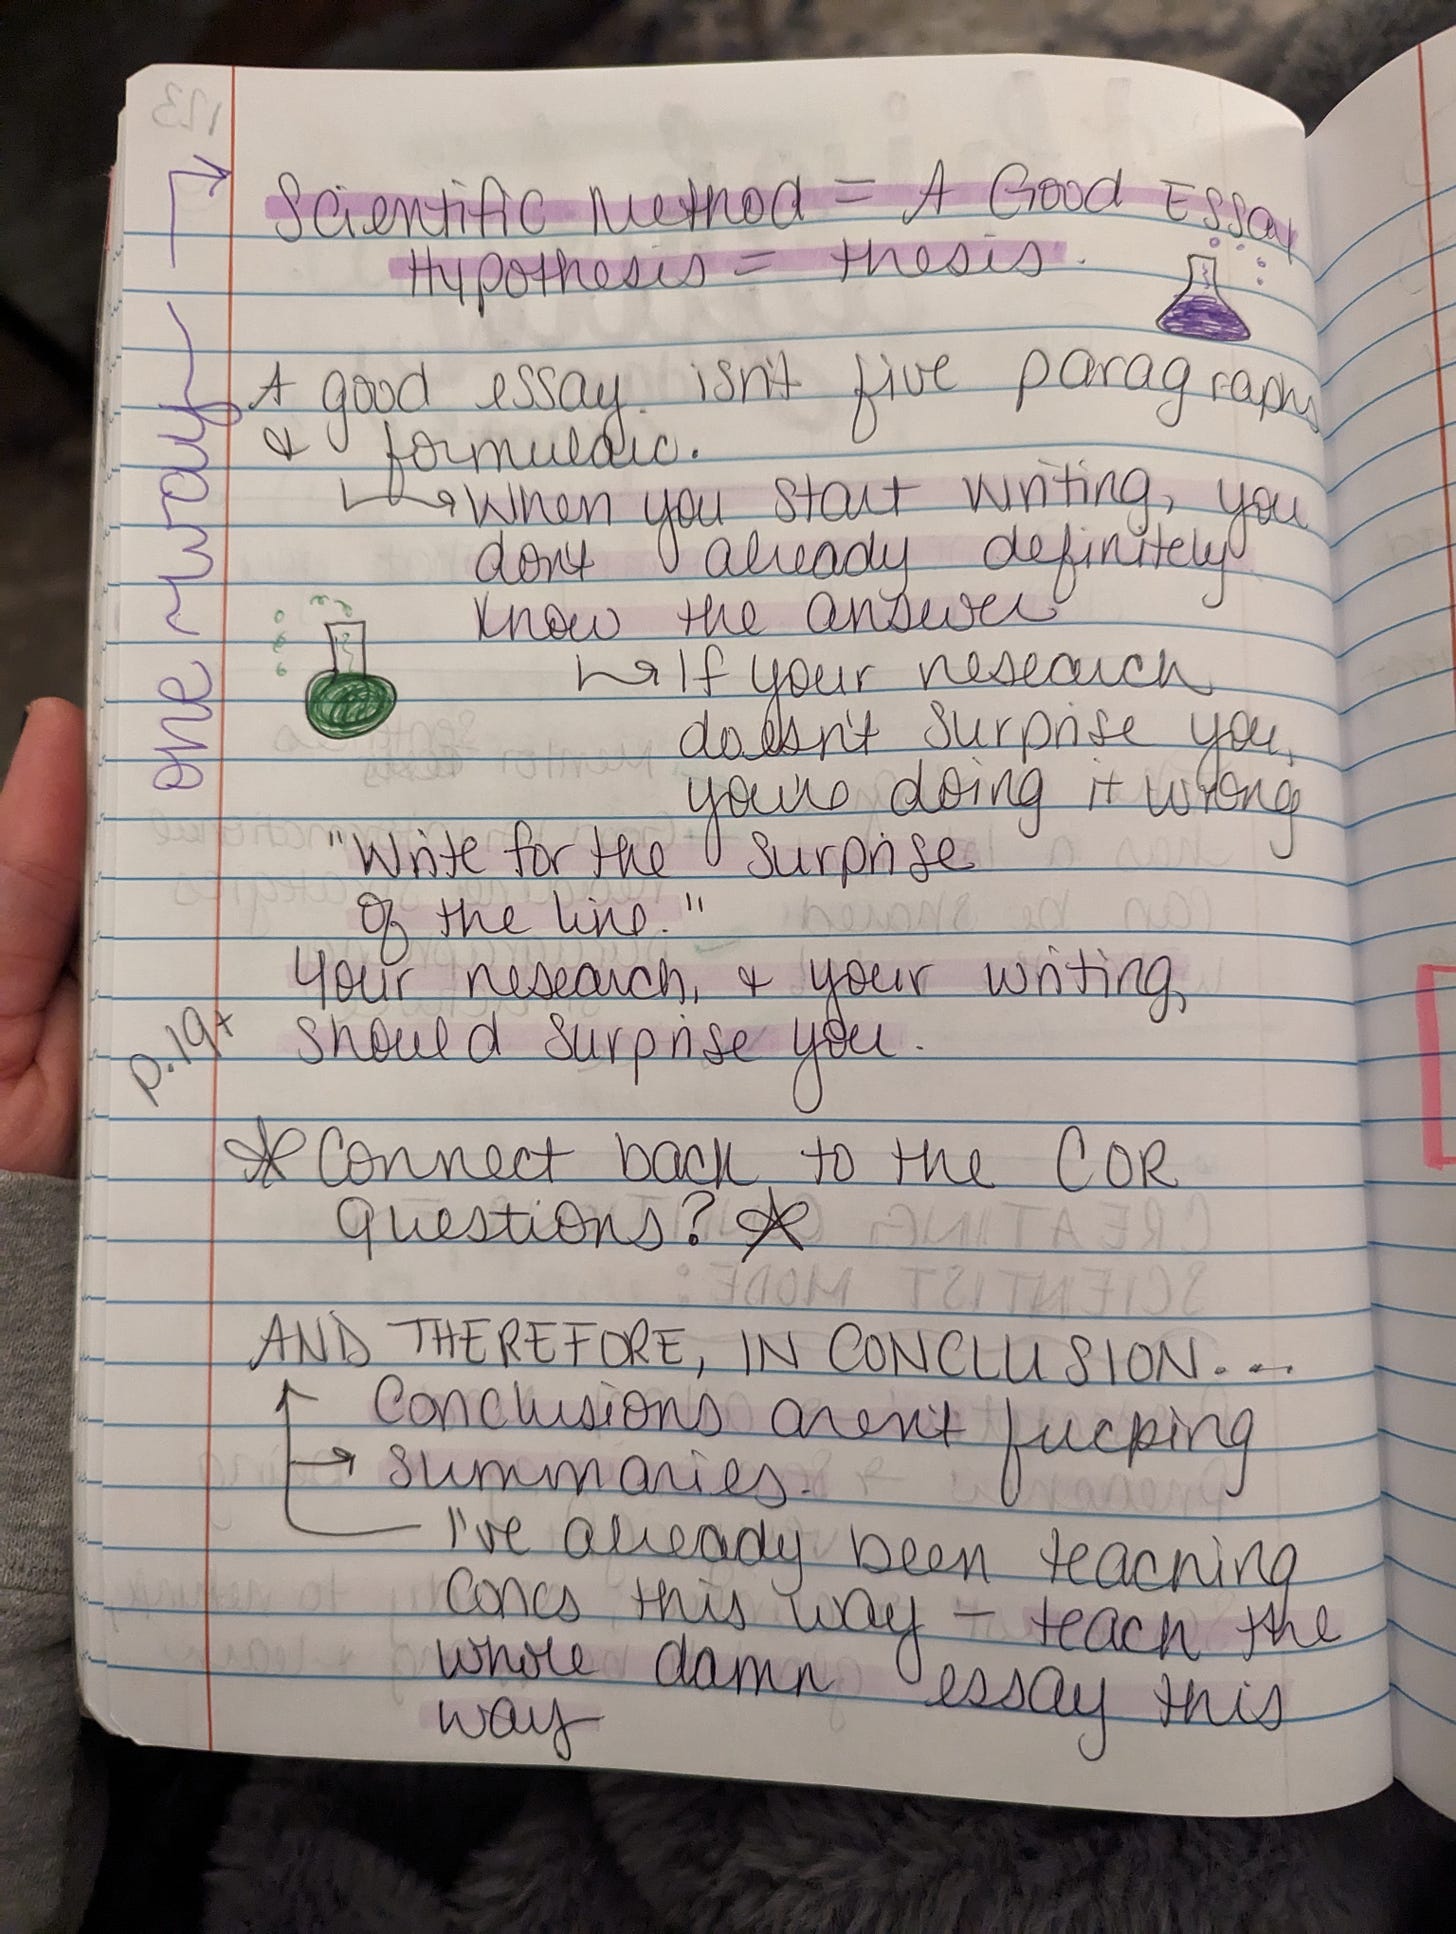 Scientific Method = A Good Essay
Hypothesis = thesis.
one way
A good essay isn't five paragraphs
& formulaic.
When you start writing, you
don't already definitely
know the answer
If your research
doesn't surprise you,
you're doing it wrong
"Write for the surprise
of the line."
Your research, & your writing,
should surprise you.
p. 19+
Connect back to the COR
Questions?
AND THEREFORE, IN CONCLUSION...
Conclusions aren't fucking
summaries.
I've already been teaching
concs this way - teach the
whole damn essay this
way